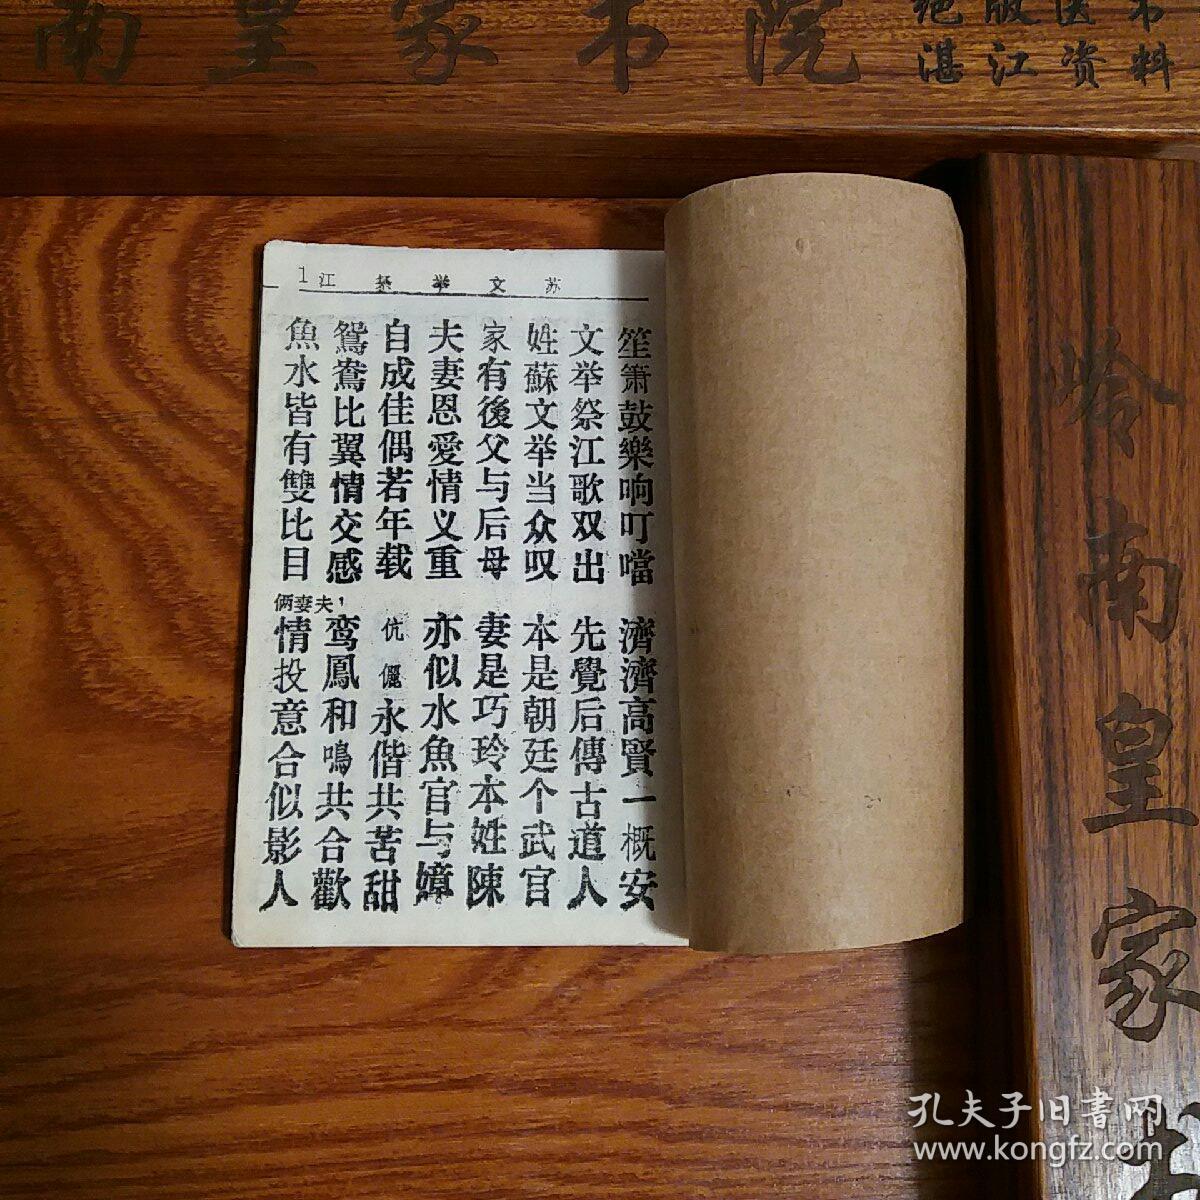 南皇家书院
绝版医书
湛江资料
苏文举祭江 1
笙箫鼓樂响叮噹 濟濟高賢一概安
文举祭江歌双出 先覺后傳古道人
姓蘇文举当众叹 本是朝廷个武官
家有後父与后母 妻是巧玲本姓陳
夫妻恩愛情义重 亦似水魚官与嫜
自成佳偶若年载 伉儷永偕共苦甜
鴛鴦比翼情交感 鸾鳳和鳴共合歡
魚水皆有雙比目 情投意合似影人
俩妻夫
岭南皇家书
孔夫子旧書网
www.kongfz.com